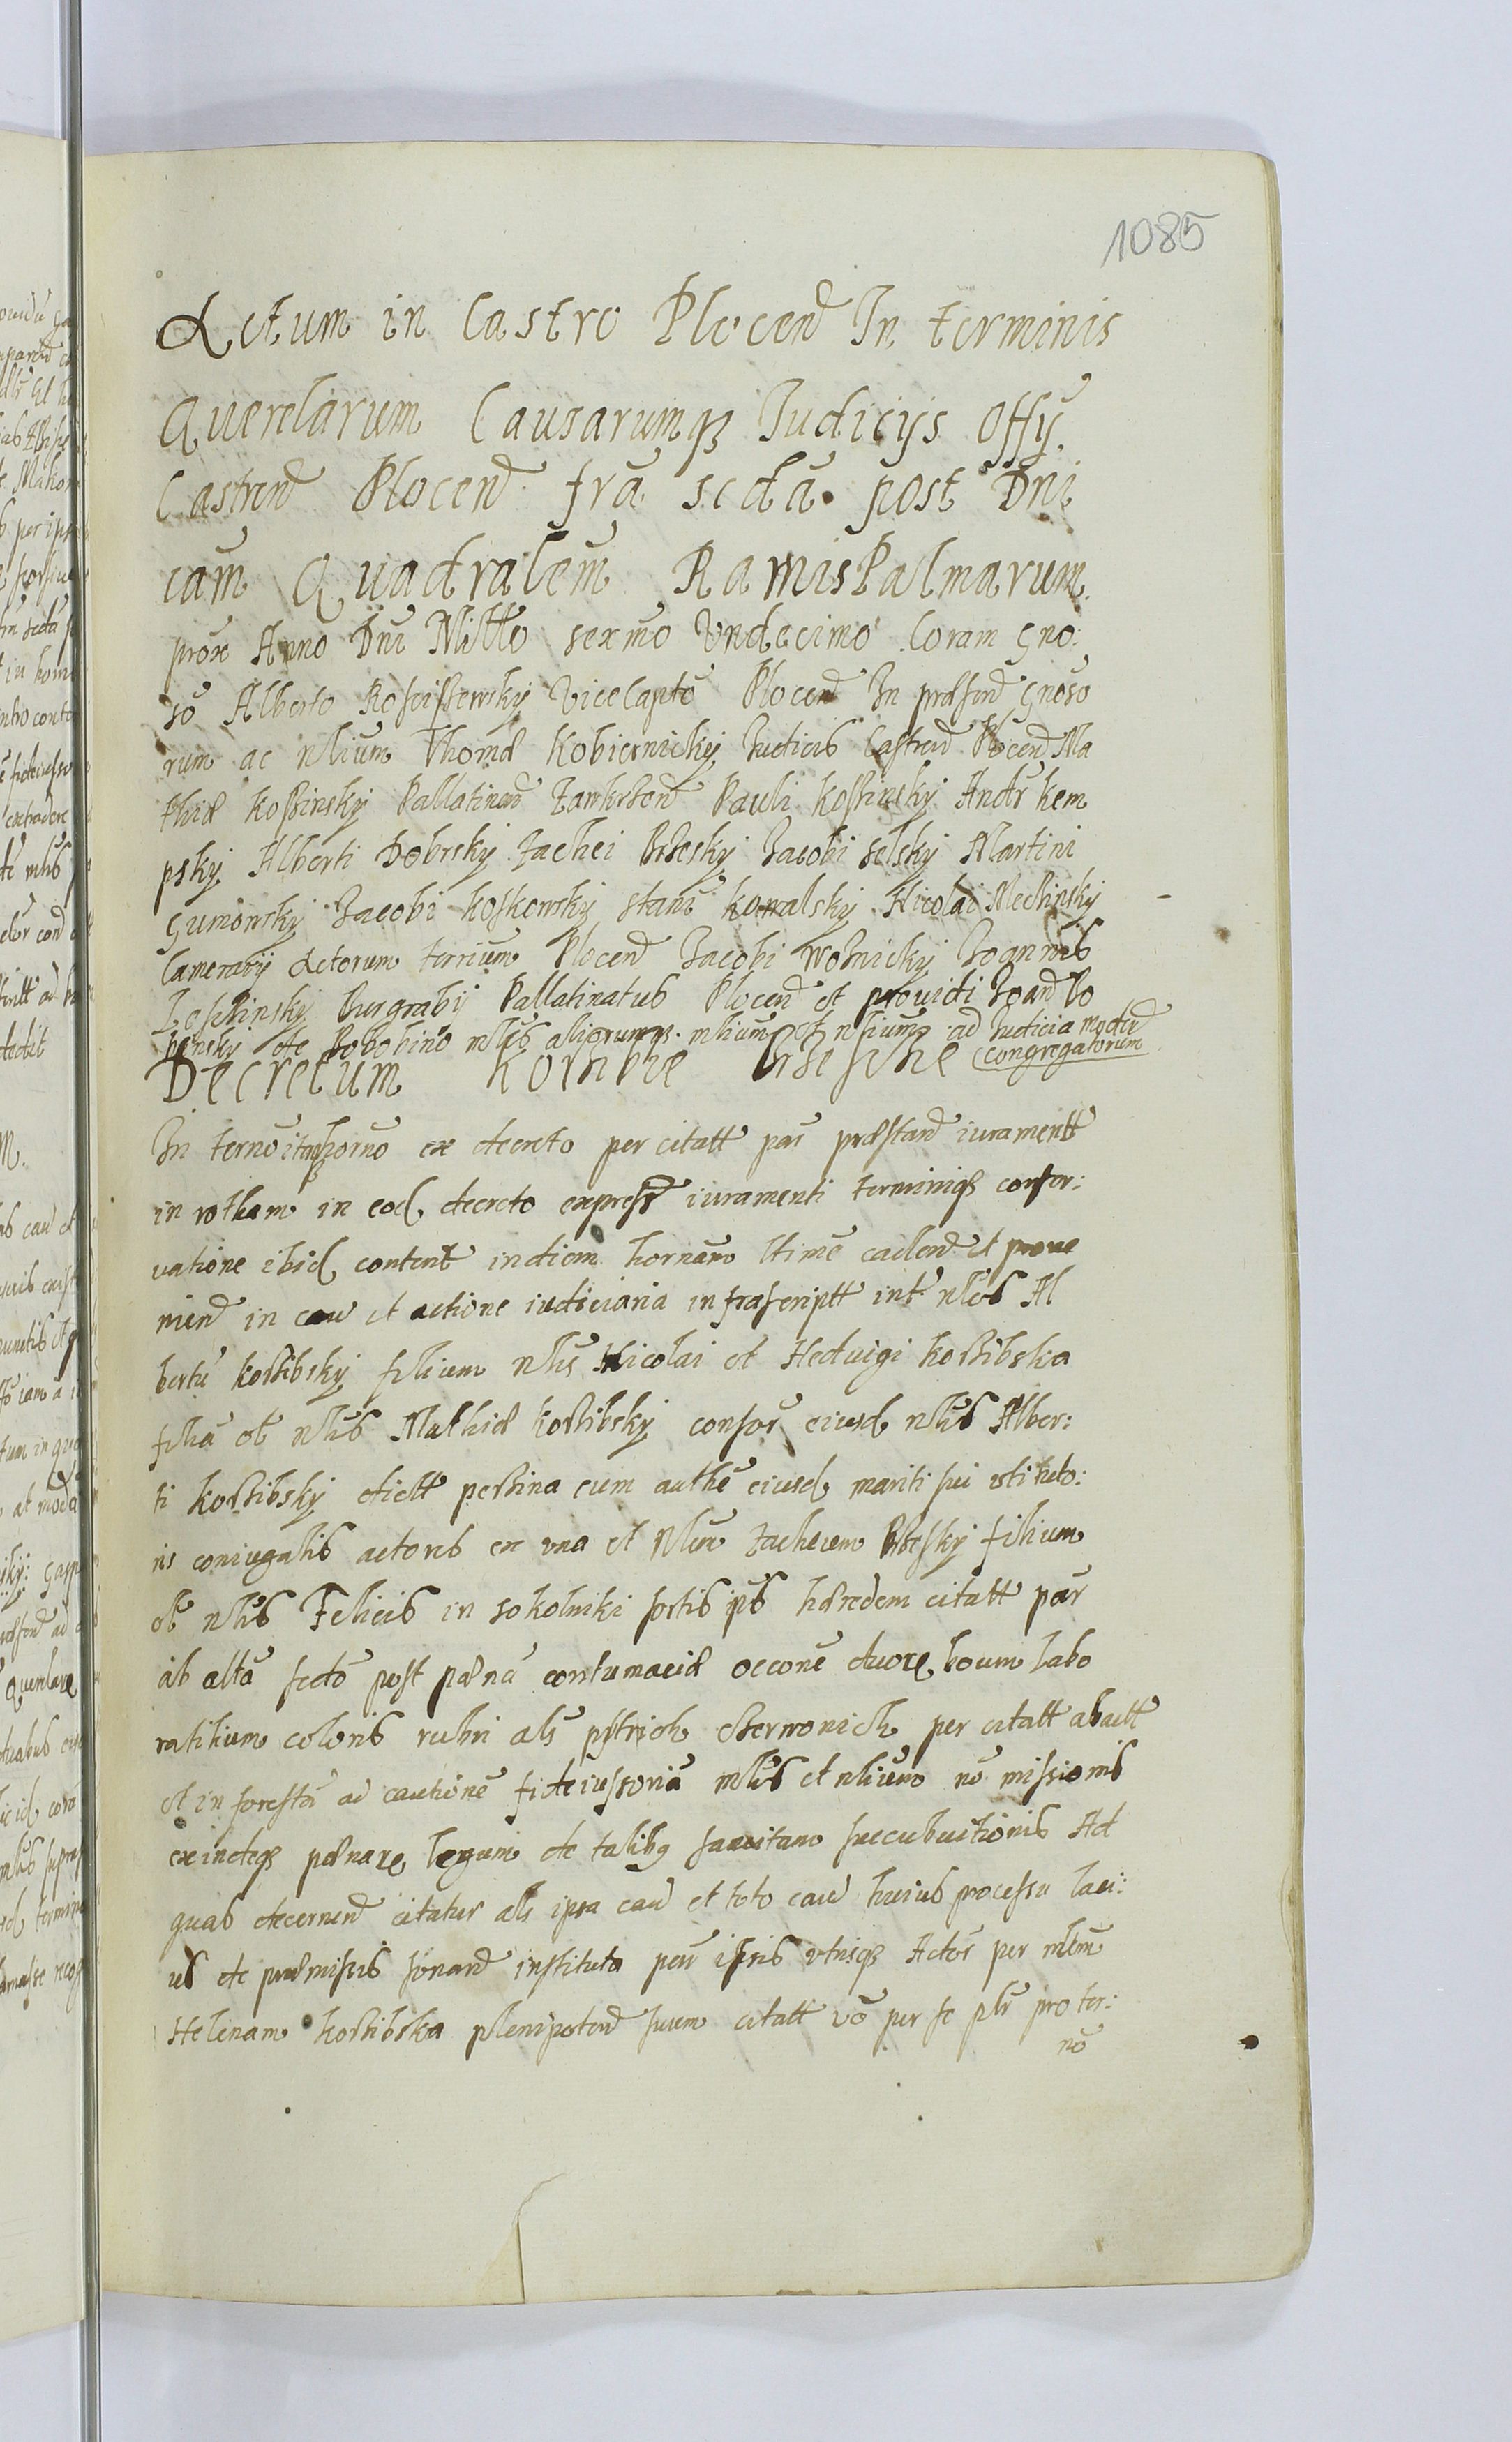 1085
Actum in Castro Plocen̄ In terminis
Querelarum Causarumqȝ Iudicijs Offij
Castren̄ Plocen̄ fr̄a scd̄a post Dn̄i
cam̄ Quadralem̄ Ramis Palmarum
prox Anno Dn̄i Mill̄o sexm̄o Undecimo Coram Gno:
so Alberto Rosciszewsky Vicecapt̄o Plocen̄ In præsen̄ Gnoso
rum ac nlium Thomæ Kobiernicky Iudicis Castren̄ Plocen̄ Ma
thiæ Kossinsky Pallatinen̄ Zawkrzen̄ Pauli Kossinsky Andr Kem
psky Alberti Dobrsky Zachei Brzesky Iacobi Selsky Martini
Gumowsky Iacobi Koskowsky Stani Kowalsky Nicolai Mechinsky
Camerarij Actorum terrium Plocen̄ Iacobi Woznicky Ioannis
Leschinsky Burgrabij Pallatinatus Plocen̄ et providi Joan̄ Bo
de Bobobino nlis aliorumqȝ nlium et nlium ad Iudicia modern̄
congregatorum
Decretum
In terno itaqȝ horno ex decreto per citatt par præstan̄ iurament̄
in rotham in eod decreto express iuramenti terminiqȝ conser:
vatione ibid content̄ in diem hornam ltime caden̄ et prove
nien̄ in cau et actione iudiciaria infrascriptt int nlos Al
bertu Kossibsky filium nlis Nicolai et Hedvigi Kossibska
filia ol nlis Mathiæ Kossibsky consor eiusd nlis Alber:
ti Kossibsky dictt persina cum authe eiusd mariti sui et tuto:
ris coniugalis actores ex una et Nlem Zacheum Brzesky filium
ol nlis Felicis in Sokolniki sortis ips hæredem citatt par
ab alta facto post pænā contumaciæ occone duorȝ boum labo
ratilium coloris rubri als pstrich czerwonich per citatt abactt
et in foresta ad cautione fideiussoria nlis et nlium no missionis
exindeqȝ pænarȝ legum de talibȝ sancitam succubuitionis Ad
quas decernen̄ citatur als ipsa cau et toto cau huius processu laci:
us de præmissis sonan̄ instituta par ipsis utrisqȝ Actor per nlem
Helenam Kossibska plenipoten̄ suem citatt vo per se plr pro ter:
no